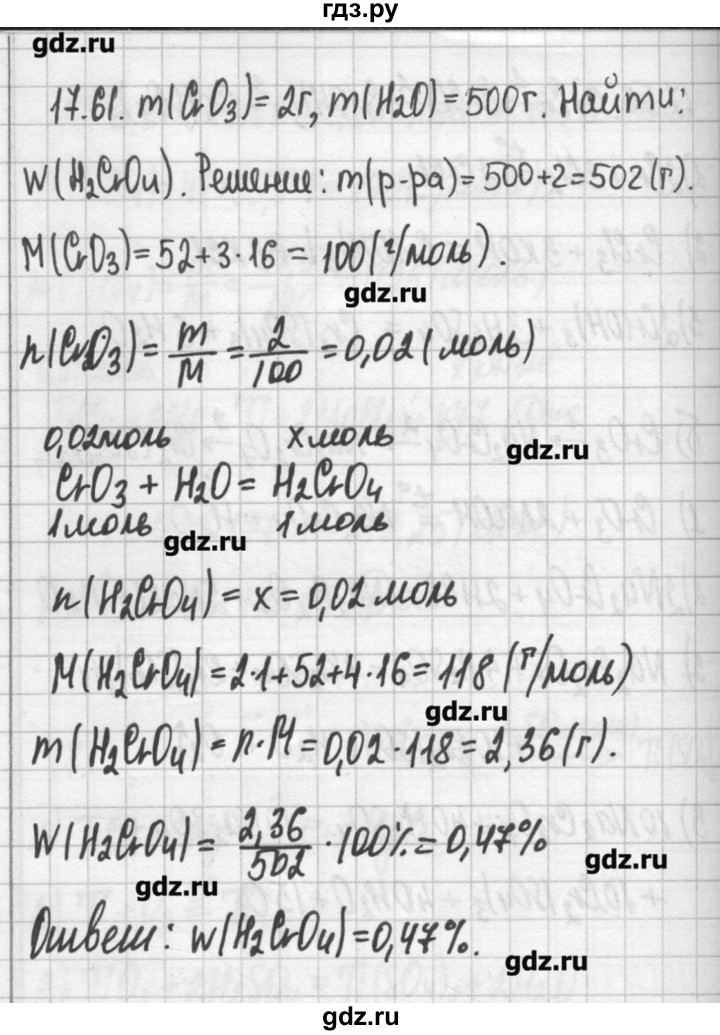 гдз.ру
gdz.ru
17.61. m(CrO₃)=2г, m(H₂O)=500г. Найти:
W(H₂CrO₄). Решение: m(р-ра)=500+2=502(г).
M(CrO₃)=52+3·16=100(г/моль).
gdz.ru
n(CrO₃)=m/M=2/100=0,02(моль)
0,02моль x моль
gdz.ru
CrO₃ + H₂O = H₂CrO₄
1моль 1моль
gdz.ru
n(H₂CrO₄)=x=0,02моль
M(H₂CrO₄)=2·1+52+4·16=118(г/моль)
gdz.ru
m(H₂CrO₄)=n·M=0,02·118=2,36(г).
W(H₂CrO₄)=2,36/502·100%=0,47%
gdz.ru
gdz.ru
Ответ: w(H₂CrO₄)=0,47%.
gdz.ru
gdz.ru